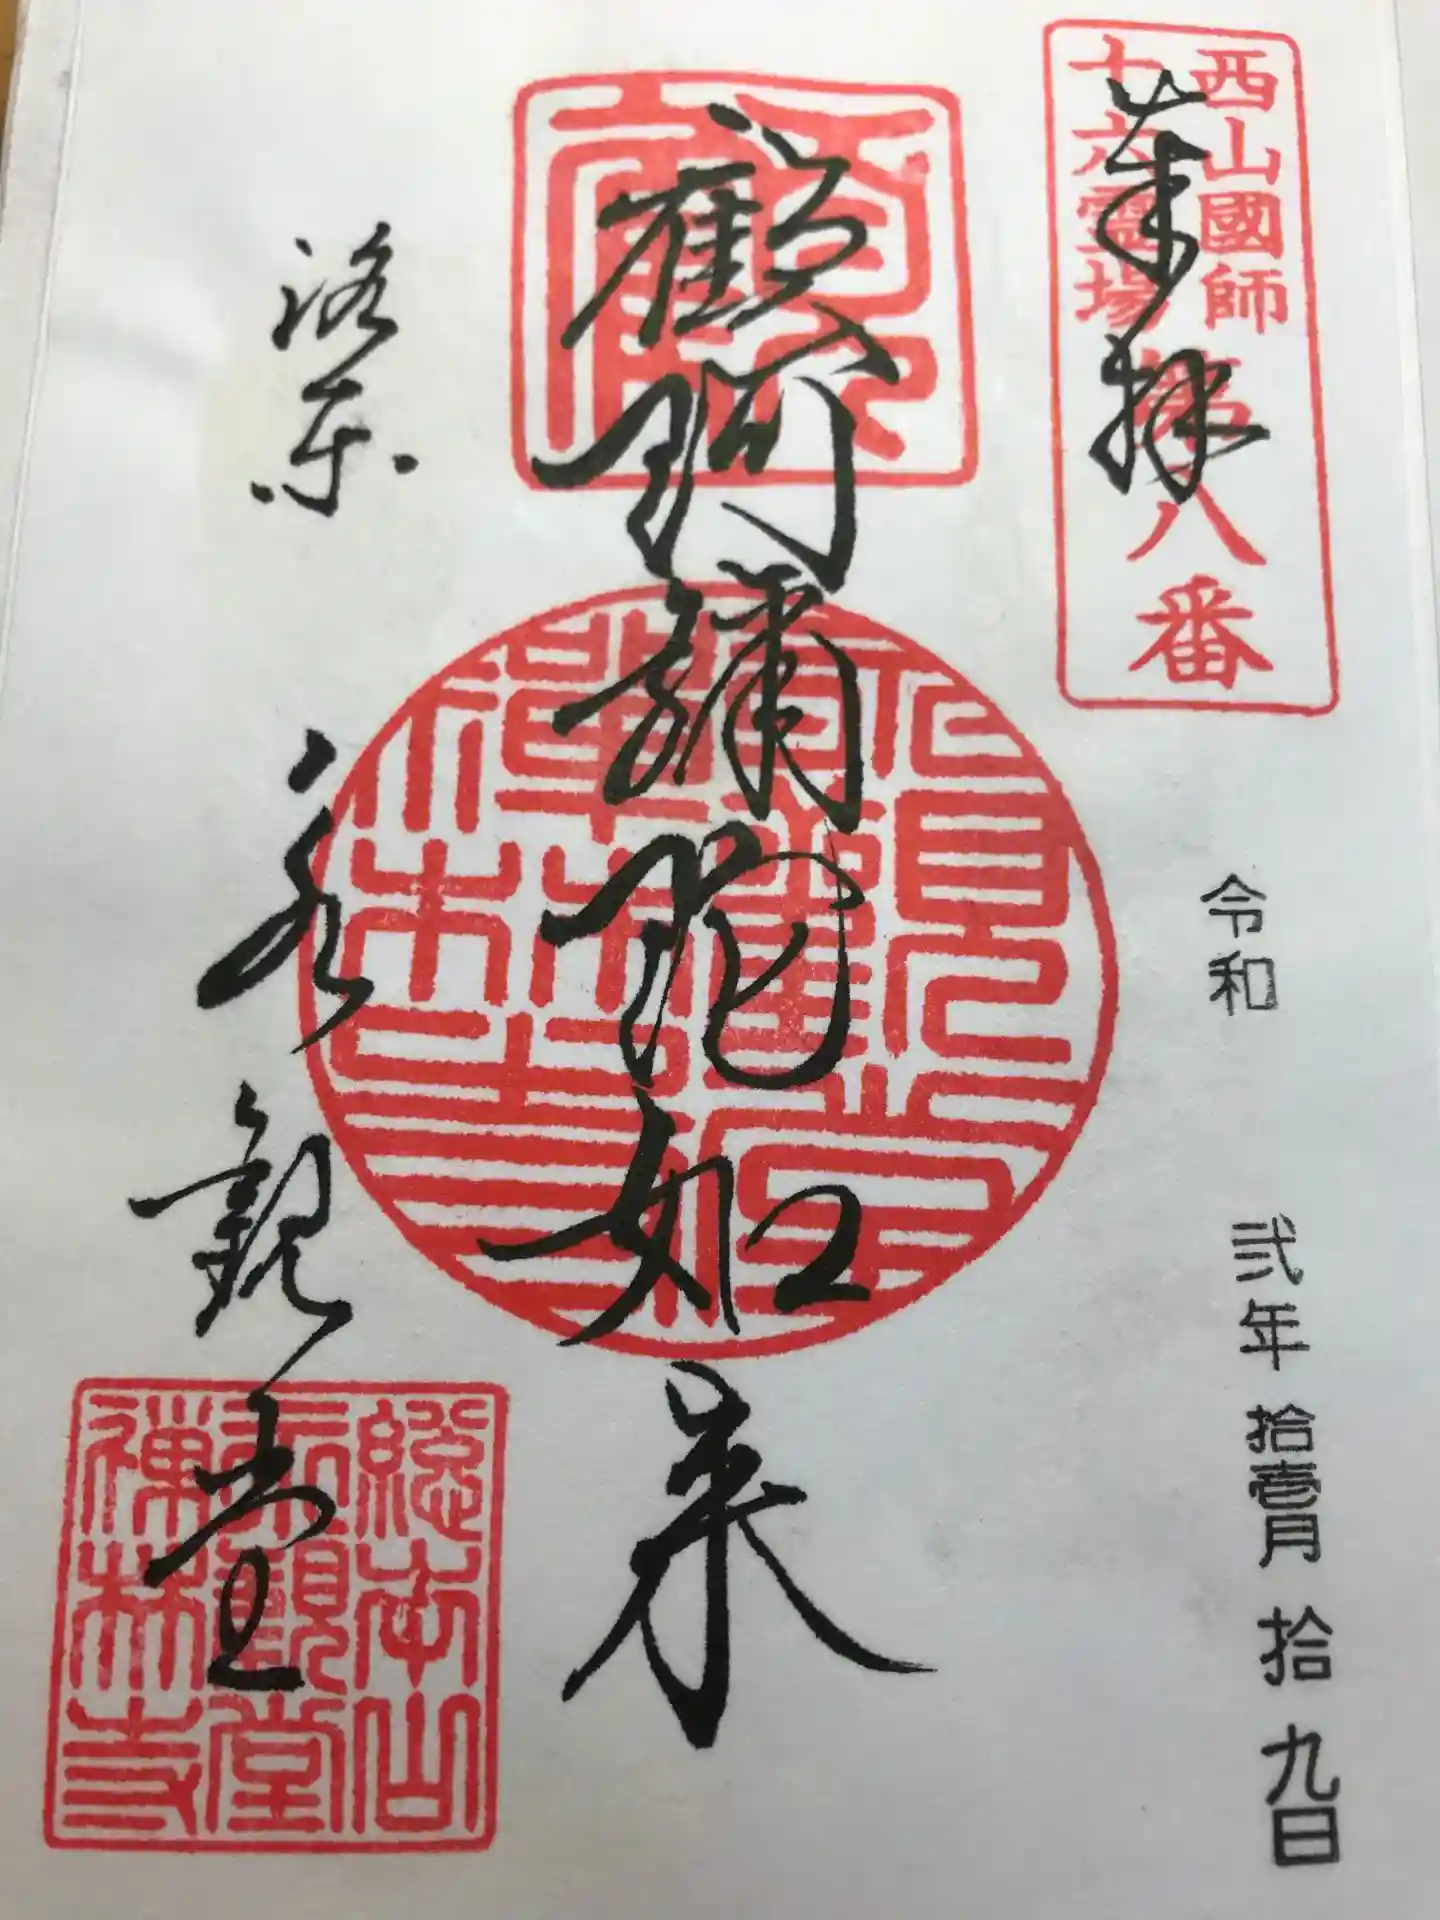 西山國師
十六霊場
第八番
奉拝
令和 弐年 拾壹月 拾九日
顧阿彌陀如来
洛東 永観堂
總本山
永觀堂
禅林寺